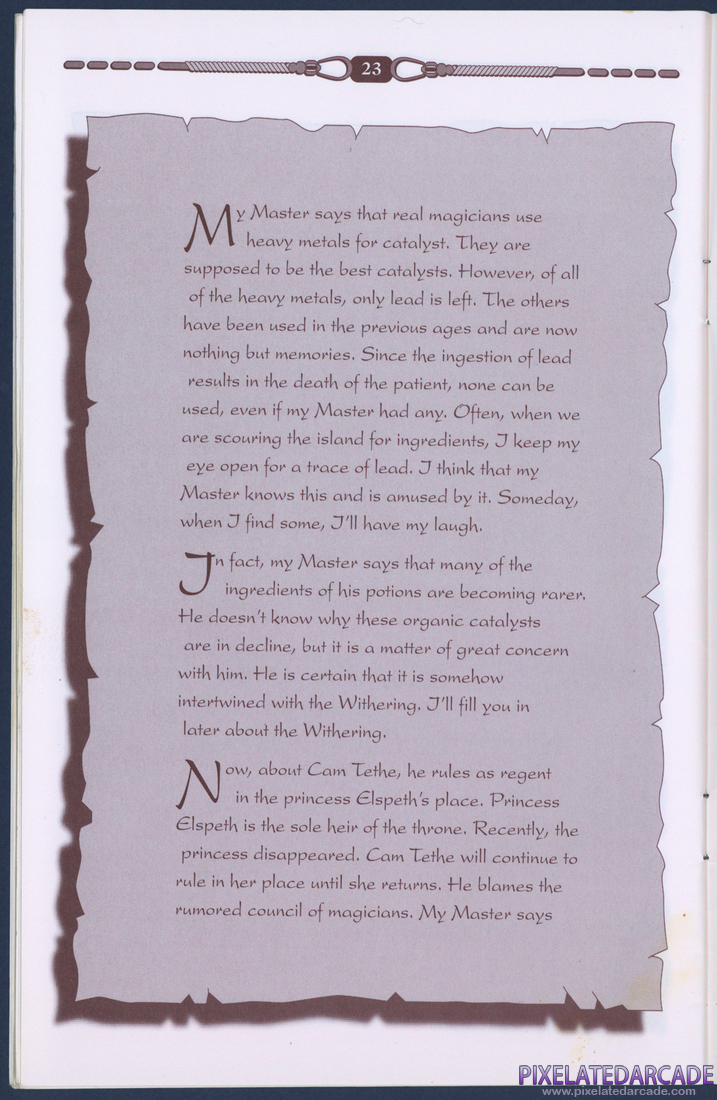 23
My Master says that real magicians use
heavy metals for catalyst. They are
supposed to be the best catalysts. However, of all
of the heavy metals, only lead is left. The others
have been used in the previous ages and are now
nothing but memories. Since the ingestion of lead
results in the death of the patient, none can be
used, even if my Master had any. Often, when we
are scouring the island for ingredients, I keep my
eye open for a trace of lead. I think that my
Master knows this and is amused by it. Someday,
when I find some, I'll have my laugh.
In fact, my Master says that many of the
ingredients of his potions are becoming rarer.
He doesn't know why these organic catalysts
are in decline, but it is a matter of great concern
with him. He is certain that it is somehow
intertwined with the Withering. I'll fill you in
later about the Withering.
Now, about Cam Tethe, he rules as regent
in the princess Elspeth's place. Princess
Elspeth is the sole heir of the throne. Recently, the
princess disappeared. Cam Tethe will continue to
rule in her place until she returns. He blames the
rumored council of magicians. My Master says
PIXELATEDARCADE
www.pixelatedarcade.com